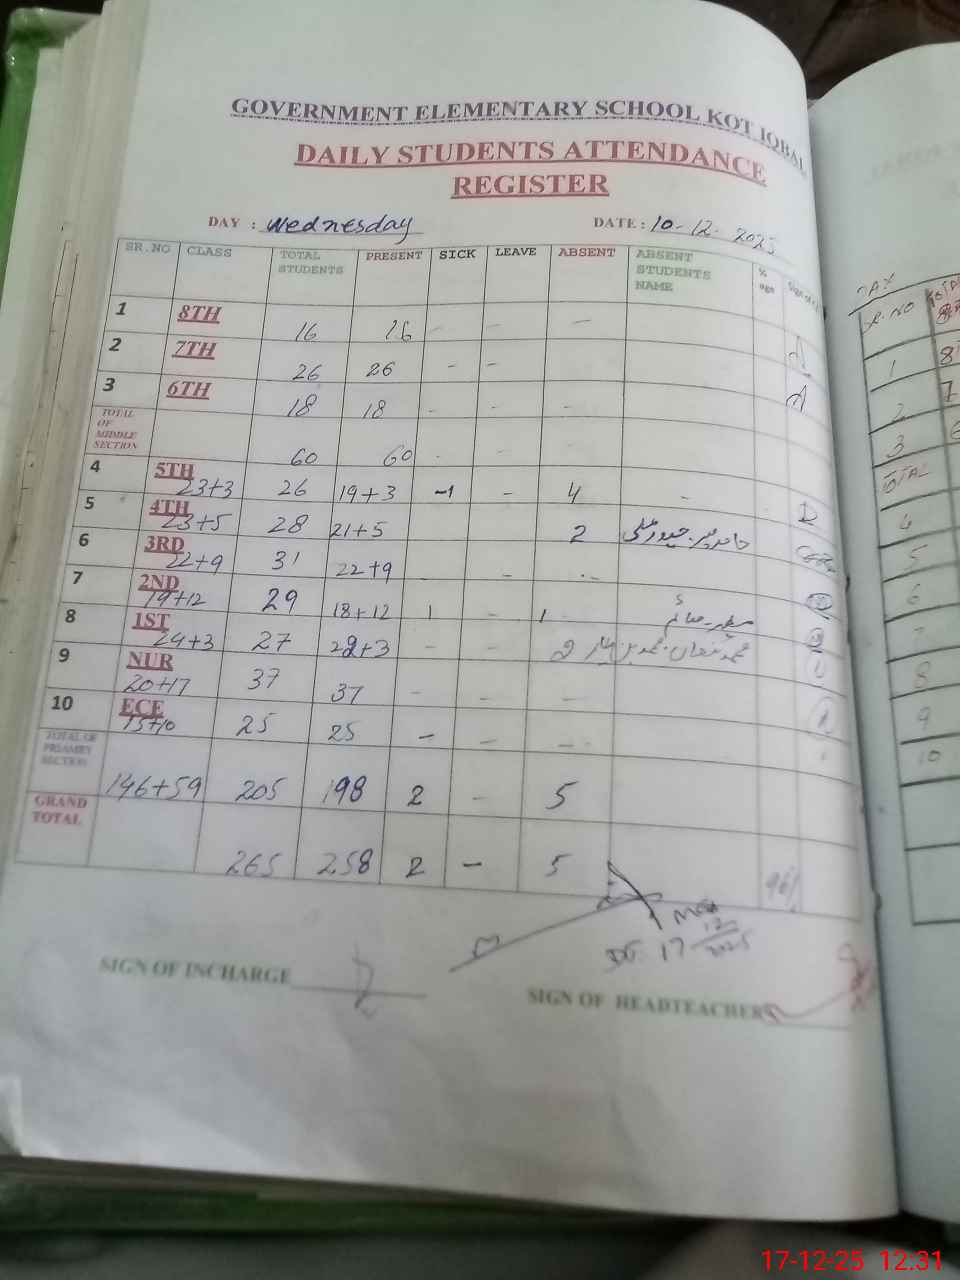 GOVERNMENT ELEMENTARY SCHOOL KOT IQBAL
DAILY STUDENTS ATTENDANCE
REGISTER
DAY : Wednesday DATE : 10-12-2025
SR.NO CLASS TOTAL STUDENTS PRESENT SICK LEAVE ABSENT ABSENT STUDENTS NAME % age
1 8TH 16 16 - - -
2 7TH 26 26 - -
3 6TH 18 18 - - -
TOTAL OF MIDDLE SECTION 60 60 -
4 5TH 23+3 26 19+3 -1 - 4 -
5 4TH 23+5 28 21+5 2
6 3RD 22+9 31 22+9 - - -
7 2ND 19+12 29 18+12 1 - 1
8 1ST 24+3 27 22+3 - - 2
9 NUR 20+17 37 37 - - -
10 ECE 15+10 25 25 - - -
TOTAL OF PRIAMRY SECTION 146+59 205 198 2 - 5
GRAND TOTAL 265 258 2 - 5 96%
17 12 2025
SIGN OF INCHARGE
SIGN OF HEADTEACHER
SR.NO
1
2
3
TOTAL
4
5
6
7
8
9
10
17-12-25 12:31